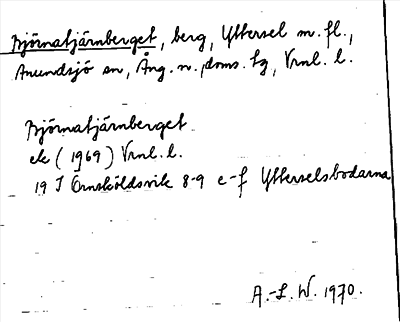 Björnatjärnberget, berg, Yttersel m.fl.,
Anundsjö sn, Ång. n. doms. tg, Vrnl. l.
Björnatjärnberget
ek (1969) Vrnl. l.
19 I Örnsköldsvik 8-9 e-f Ytterselsbodarna
A.-L. W. 1970.